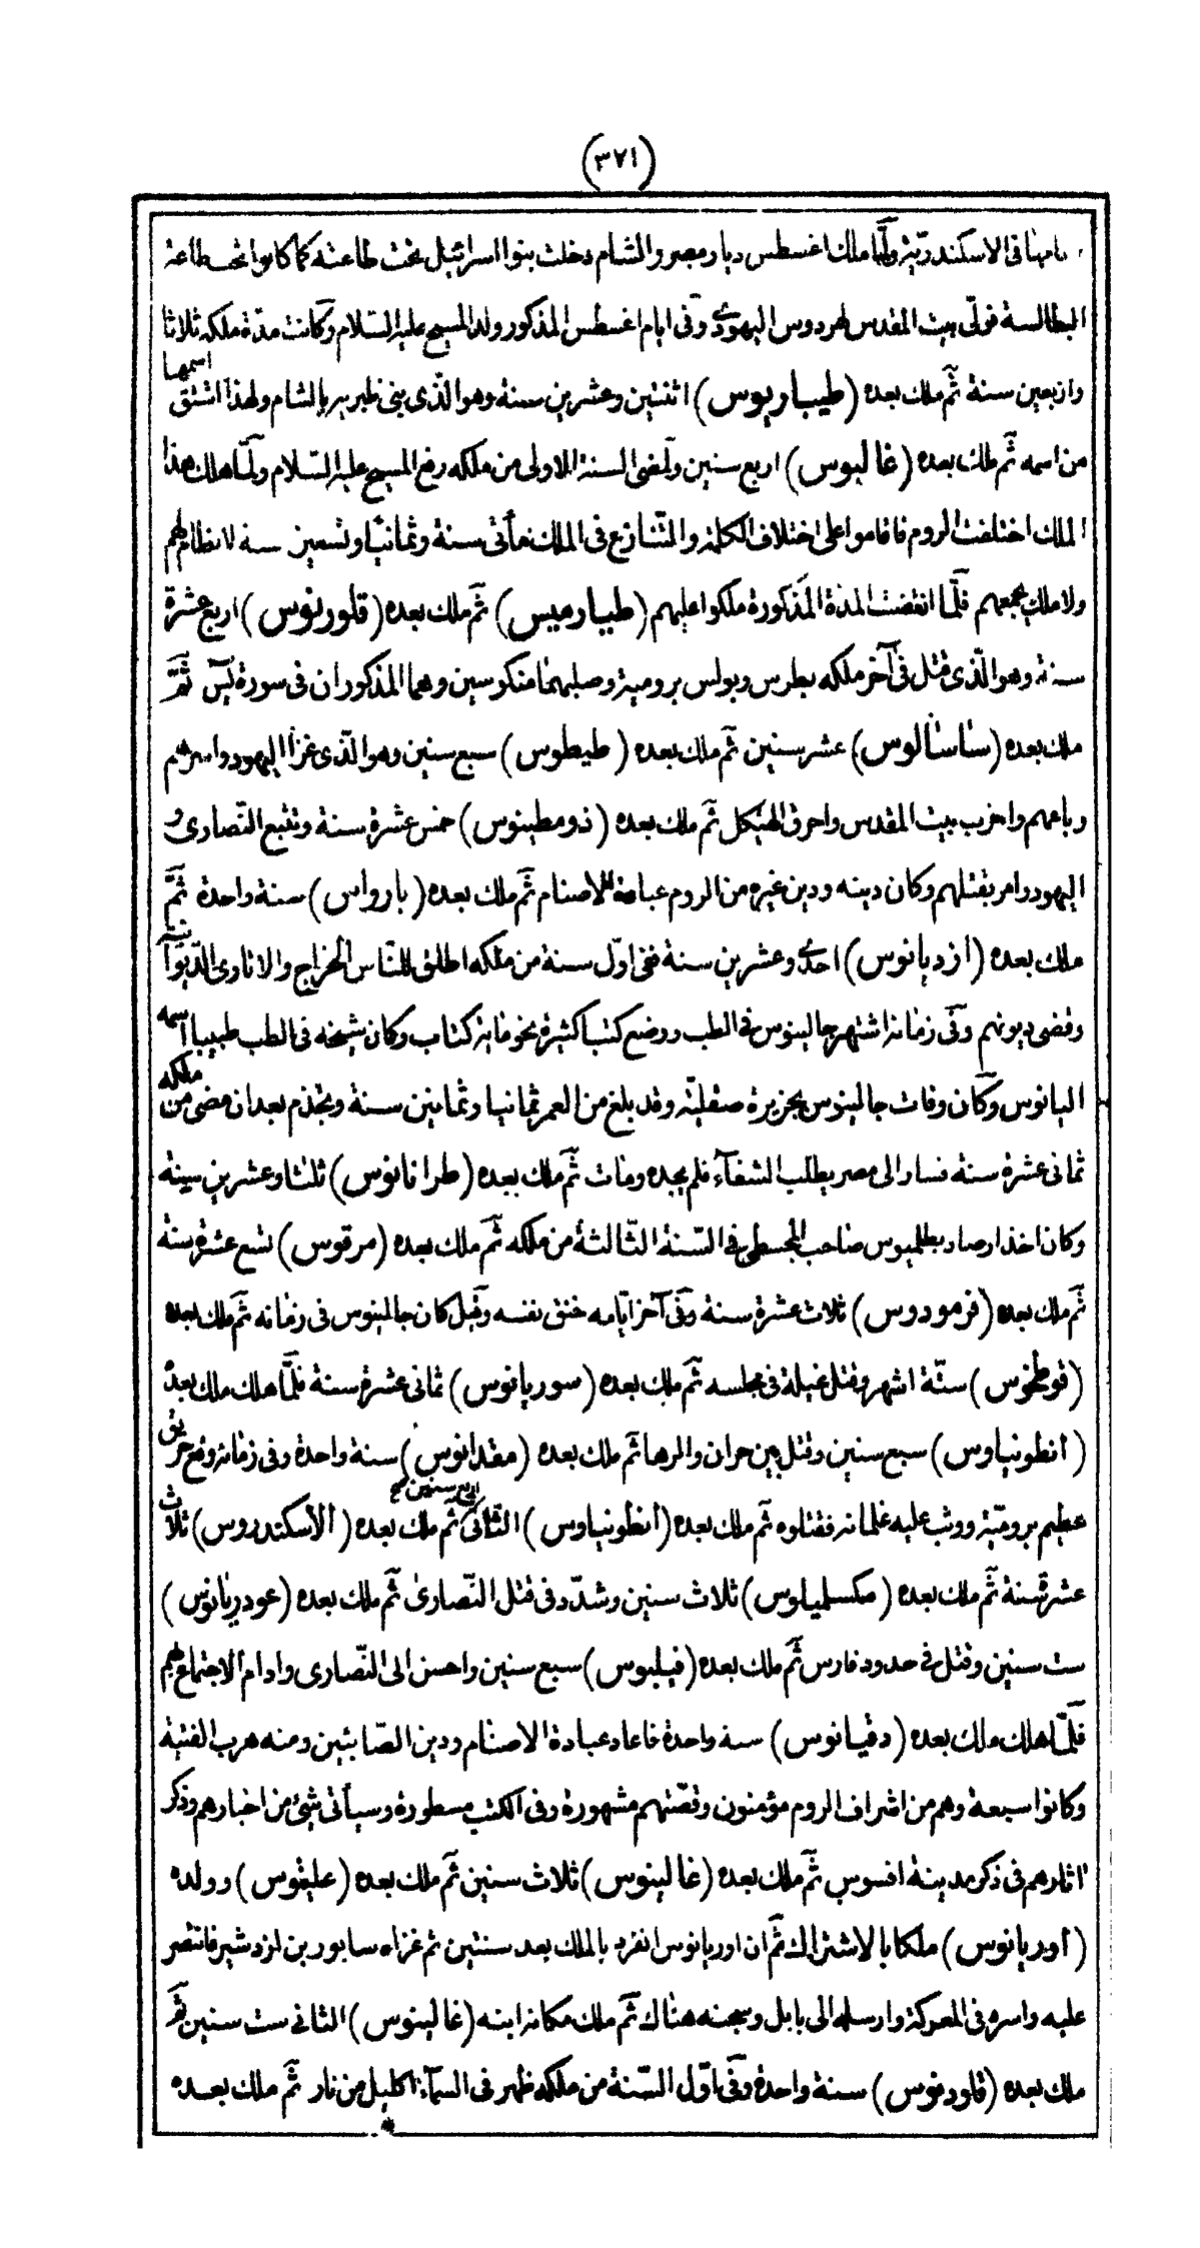 (٣٧١)
فى الاسكندريّة ولمّا ملك اغسطس ديار مصر والشام دخلت بنوا اسرائيل تحت طاعته كما كانوا تحت طاعة
البطالسة فولّى بيت المقدس لهردوس اليهودى وفى ايام اغسطس المذكور ولد المسيح عليه السّلام وكانت مدّة ملكه ثلاثا
واربعين سنة ثمّ ملك بعده (طيباريوس) اثنتين وعشرين سنة وهو الّذى بنى طبريه بالشام ولهذا اشتق اسمها
من اسمه ثمّ ملك بعده (غاليوس) اربع سنين ولمضى السنة الاولى من ملكه رفع المسيح عليه السّلام ولمّا هلك هذا
الملك اختلفت الروم فاقاموا على اختلاف الكلمة والتّنازع فى الملك مأتى سنة وثمانيا وتسعين سنة لا نظام لهم
ولا ملك يجمعهم فلمّا انقضت المدة المذكورة ملكوا عليهم (طيارميس) ثمّ ملك بعده (قلوريوس) اربع عشرة
سنة وهو الّذى قتل فى آخر ملكه بطرس وبولس برومية وصلبهما منكوسين وهما المذكوران فى سورة يس ثمّ
ملك بعده (ساسالوس) عشر سنين ثمّ ملك بعده (طيطوس) سبع سنين وهو الّذى غزا اليهود واسرهم
وباعهم واخرب بيت المقدس واحرق الهيكل ثمّ ملك بعده (ذومطينوس) خمس عشرة سنة وتتبع النّصارى و
اليهود وامر بقتلهم وكان دينه ودين غيره من الروم عبادة الاصنام ثمّ ملك بعده (بارواس) سنة واحدة ثمّ
ملك بعده (ازديانوس) احدى وعشرين سنة ففى اوّل سنة من ملكه اطلق للنّاس الخراج والاتاوى الدّيوانية
وقضى ديونهم وفى زمانه اشتهر جالينوس فى الطب ووضع كتبا كثيرة نحو مائة كتاب وكان شيخه فى الطب طبيبا اسمه
اليانوس وكان وفات جالينوس بجزيرة صقليّة وقد بلغ من العمر ثمانيا وثمانين سنة وتجذم بعد ان مضى من ملكه
ثمانى عشرة سنة فسار الى مصر يطلب الشفاء فلم يجده ومات ثمّ ملك بعده (طرانانوس) ثلثا وعشرين سنة
وكان اخذ ارصاد بطلميوس صاحب المجسطى فى السّنة الثّالثة من ملكه ثمّ ملك بعده (مرقوس) تسع عشرة سنة
ثمّ ملك بعده (فرمودوس) ثلاث عشرة سنة وفى آخر ايّامه خنق نفسه وقيل كان جالينوس فى زمانه ثمّ ملك بعده
(قوطخوس) ستّة اشهر وقتل غيلة فى مجلسه ثمّ ملك بعده (سوريانوس) ثمانى عشرة سنة فلمّا هلك ملك بعده
(انطونياوس) سبع سنين وقتل بين حران والرها ثمّ ملك بعده (مقدانوس) سنة واحدة وفى زمانه وقع حريق
عظيم برومّية ووثب عليه غلمانه فقتلوه ثمّ ملك بعده (انطونياوس) الثّانى اربع سنين ثمّ ملك بعده (الأسكندروس) ثلاث
عشرة سنة ثمّ ملك بعده (مكسلمياوس) ثلاث سنين وشدّد فى قتل النّصارى ثمّ ملك بعده (عوديانوس)
ست سنين وقتل فى حدود فارس ثمّ ملك بعده (فيلبوس) سبع سنين واحسن الى النّصارى وادام الاجتماع بهم
فلمّا هلك ملك بعده (دقيانوس) سنة واحدة فاعاد عبادة الاصنام ودين الصّابئين ومنه هرب الفتية
وكانوا سبعة وهم من اشراف الروم مؤمنون وقصّتهم مشهورة وفى الكتب مسطورة وسيأتى شئ من اخبارهم وذكر
آثارهم فى ذكر مدينة افسوس ثمّ ملك بعده (غالينوس) ثلاث سنين ثمّ ملك بعده (عليقوس) وولده
(أوريانوس) ملكا بالاشتراك ثمّ ان اوريانوس انفرد بالملك بعد سنتين ثم غزاه سابور بن ازدشير فانتصر
عليه واسره فى المعركة وارسله الى بابل وسجنه هناك ثمّ ملك مكانه ابنه (غالينوس) الثانى ست سنين ثمّ
ملك بعده (قلوديوس) سنة واحدة وفى اوّل السّنة من ملكه ظهر فى السمآء اكليل من نار ثمّ ملك بعده